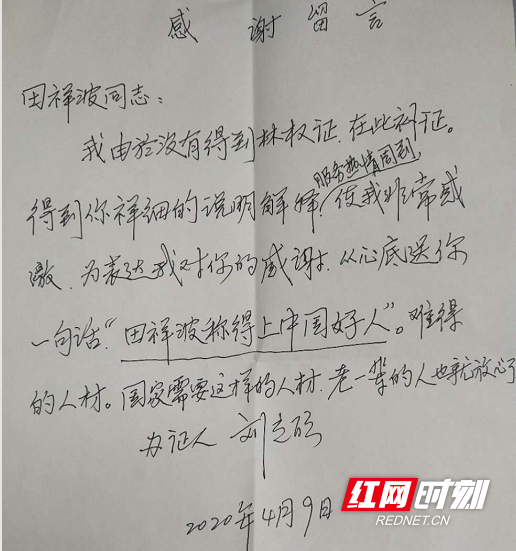 感谢留言
田祥波同志：
我由於没有得到林权证.在此补证。
服务热情周到,
得到你祥细的说明解释!使我非常感
激.为表达我对你的感谢.从心底送你
一句话“田祥波称得上中国好人”。难得
的人材。国家需要这样的人材.老一辈的人也就放心了
办证人 刘
2020年4月9日
红网时刻
REDNET.CN